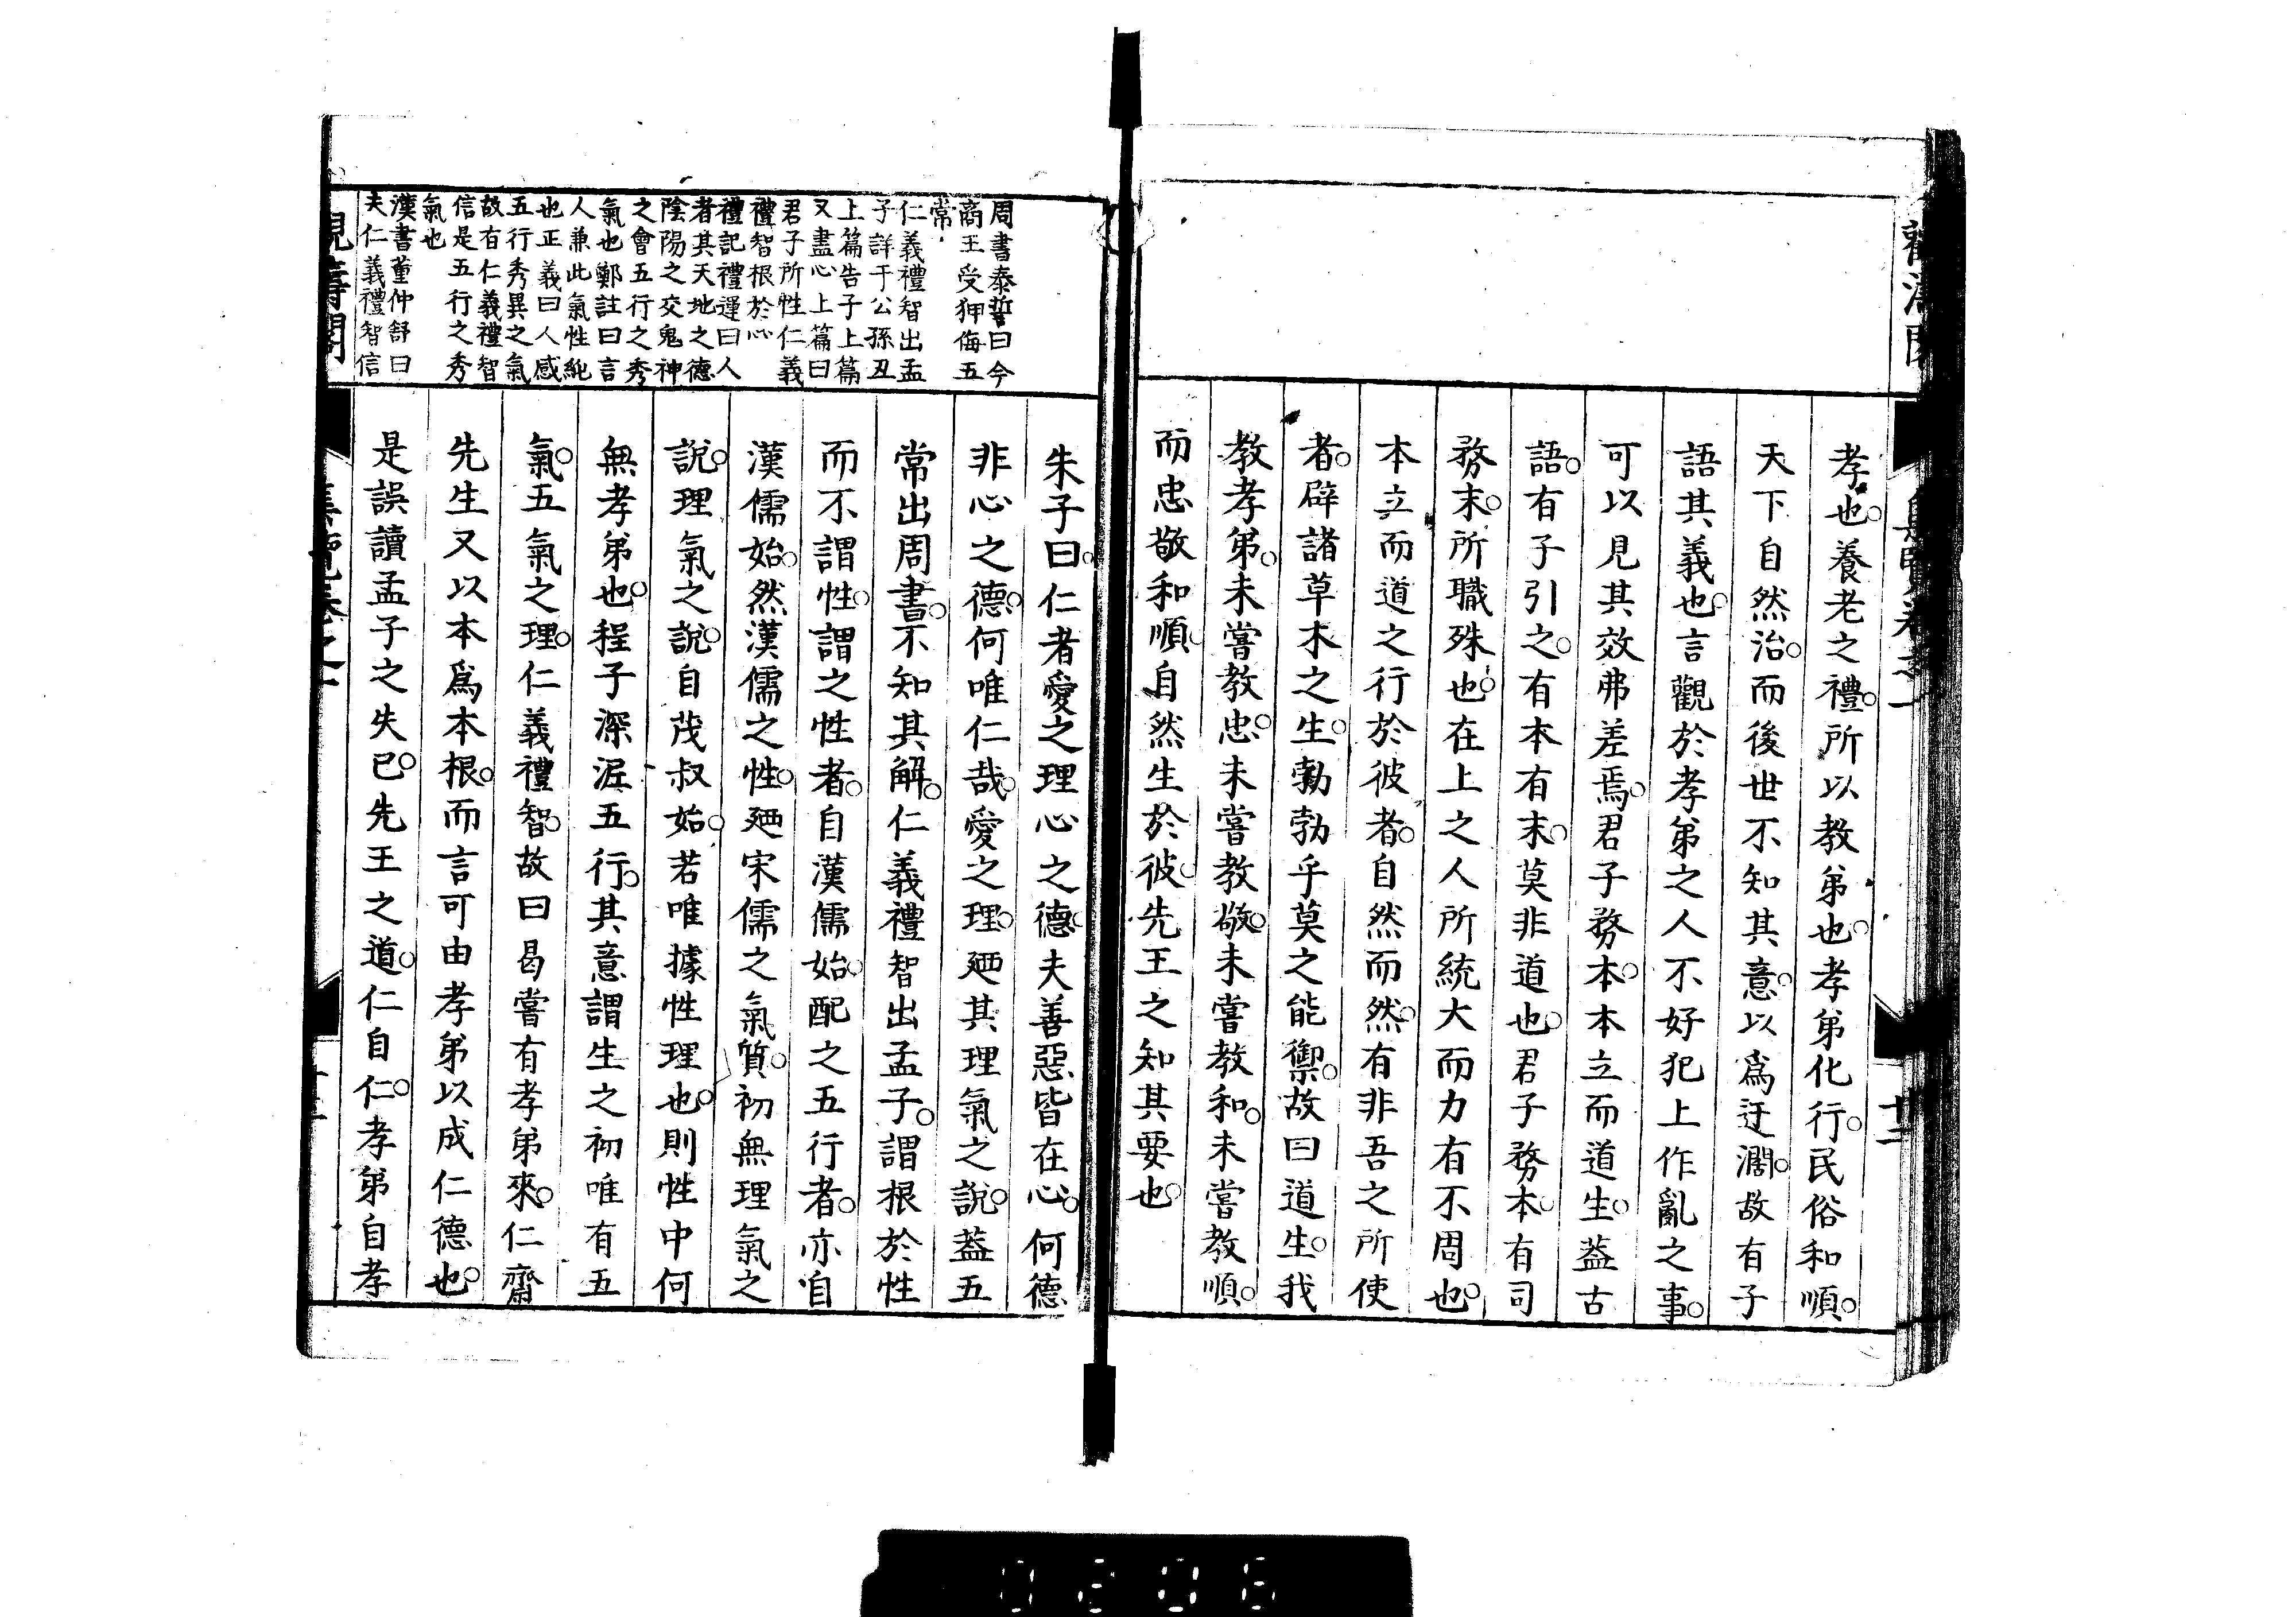 孝也養老之禮所以教弟也孝弟化行民俗和順
天下自然治而後世不知其意以爲迂濶故有子
語其義也言觀於孝弟之人不好犯上作亂之事
可以見其效弗差焉君子務本本立而道生葢古
語有子引之有本有末莫非道也君子務本有司
務末所職殊也在上之人所統大而力有不周也
本立而道之行於彼者自然而然有非吾之所使
者辟諸草木之生勃勃乎莫之能禦故曰道生我
教孝弟未嘗教忠未嘗教敬未嘗教和未嘗教順
而忠敬和順自然生於彼先王之知其要也
周書泰誓曰今
商王受狎侮五
常
仁義禮智出孟
子詳于公孫丑
上篇告子上篇
又盡心上篇曰
君子所性仁義
禮智根於心
禮記禮運曰人
者其天地之德
陰陽之交鬼神
之會五行之秀
氣也鄭註曰言
人兼此氣性純
也正義曰人感
五行秀異之氣
故有仁義禮智
信是五行之秀
氣也
漢書董仲舒曰
夫仁義禮智信
朱子曰仁者愛之理心之德夫善惡皆在心何德
非心之德何唯仁哉愛之理廼其理氣之說葢五
常出周書不知其解仁義禮智出孟子謂根於性
而不謂性謂之性者自漢儒始配之五行者亦自
漢儒始然漢儒之性廼宋儒之氣質初無理氣之
說理氣之說自茂叔始若唯據性理也則性中何
無孝弟也程子深泥五行其意謂生之初唯有五
氣五氣之理仁義禮智故曰曷嘗有孝弟來仁齋
先生又以本爲本根而言可由孝弟以成仁德也
是誤讀孟子之失已先王之道仁自仁孝弟自孝